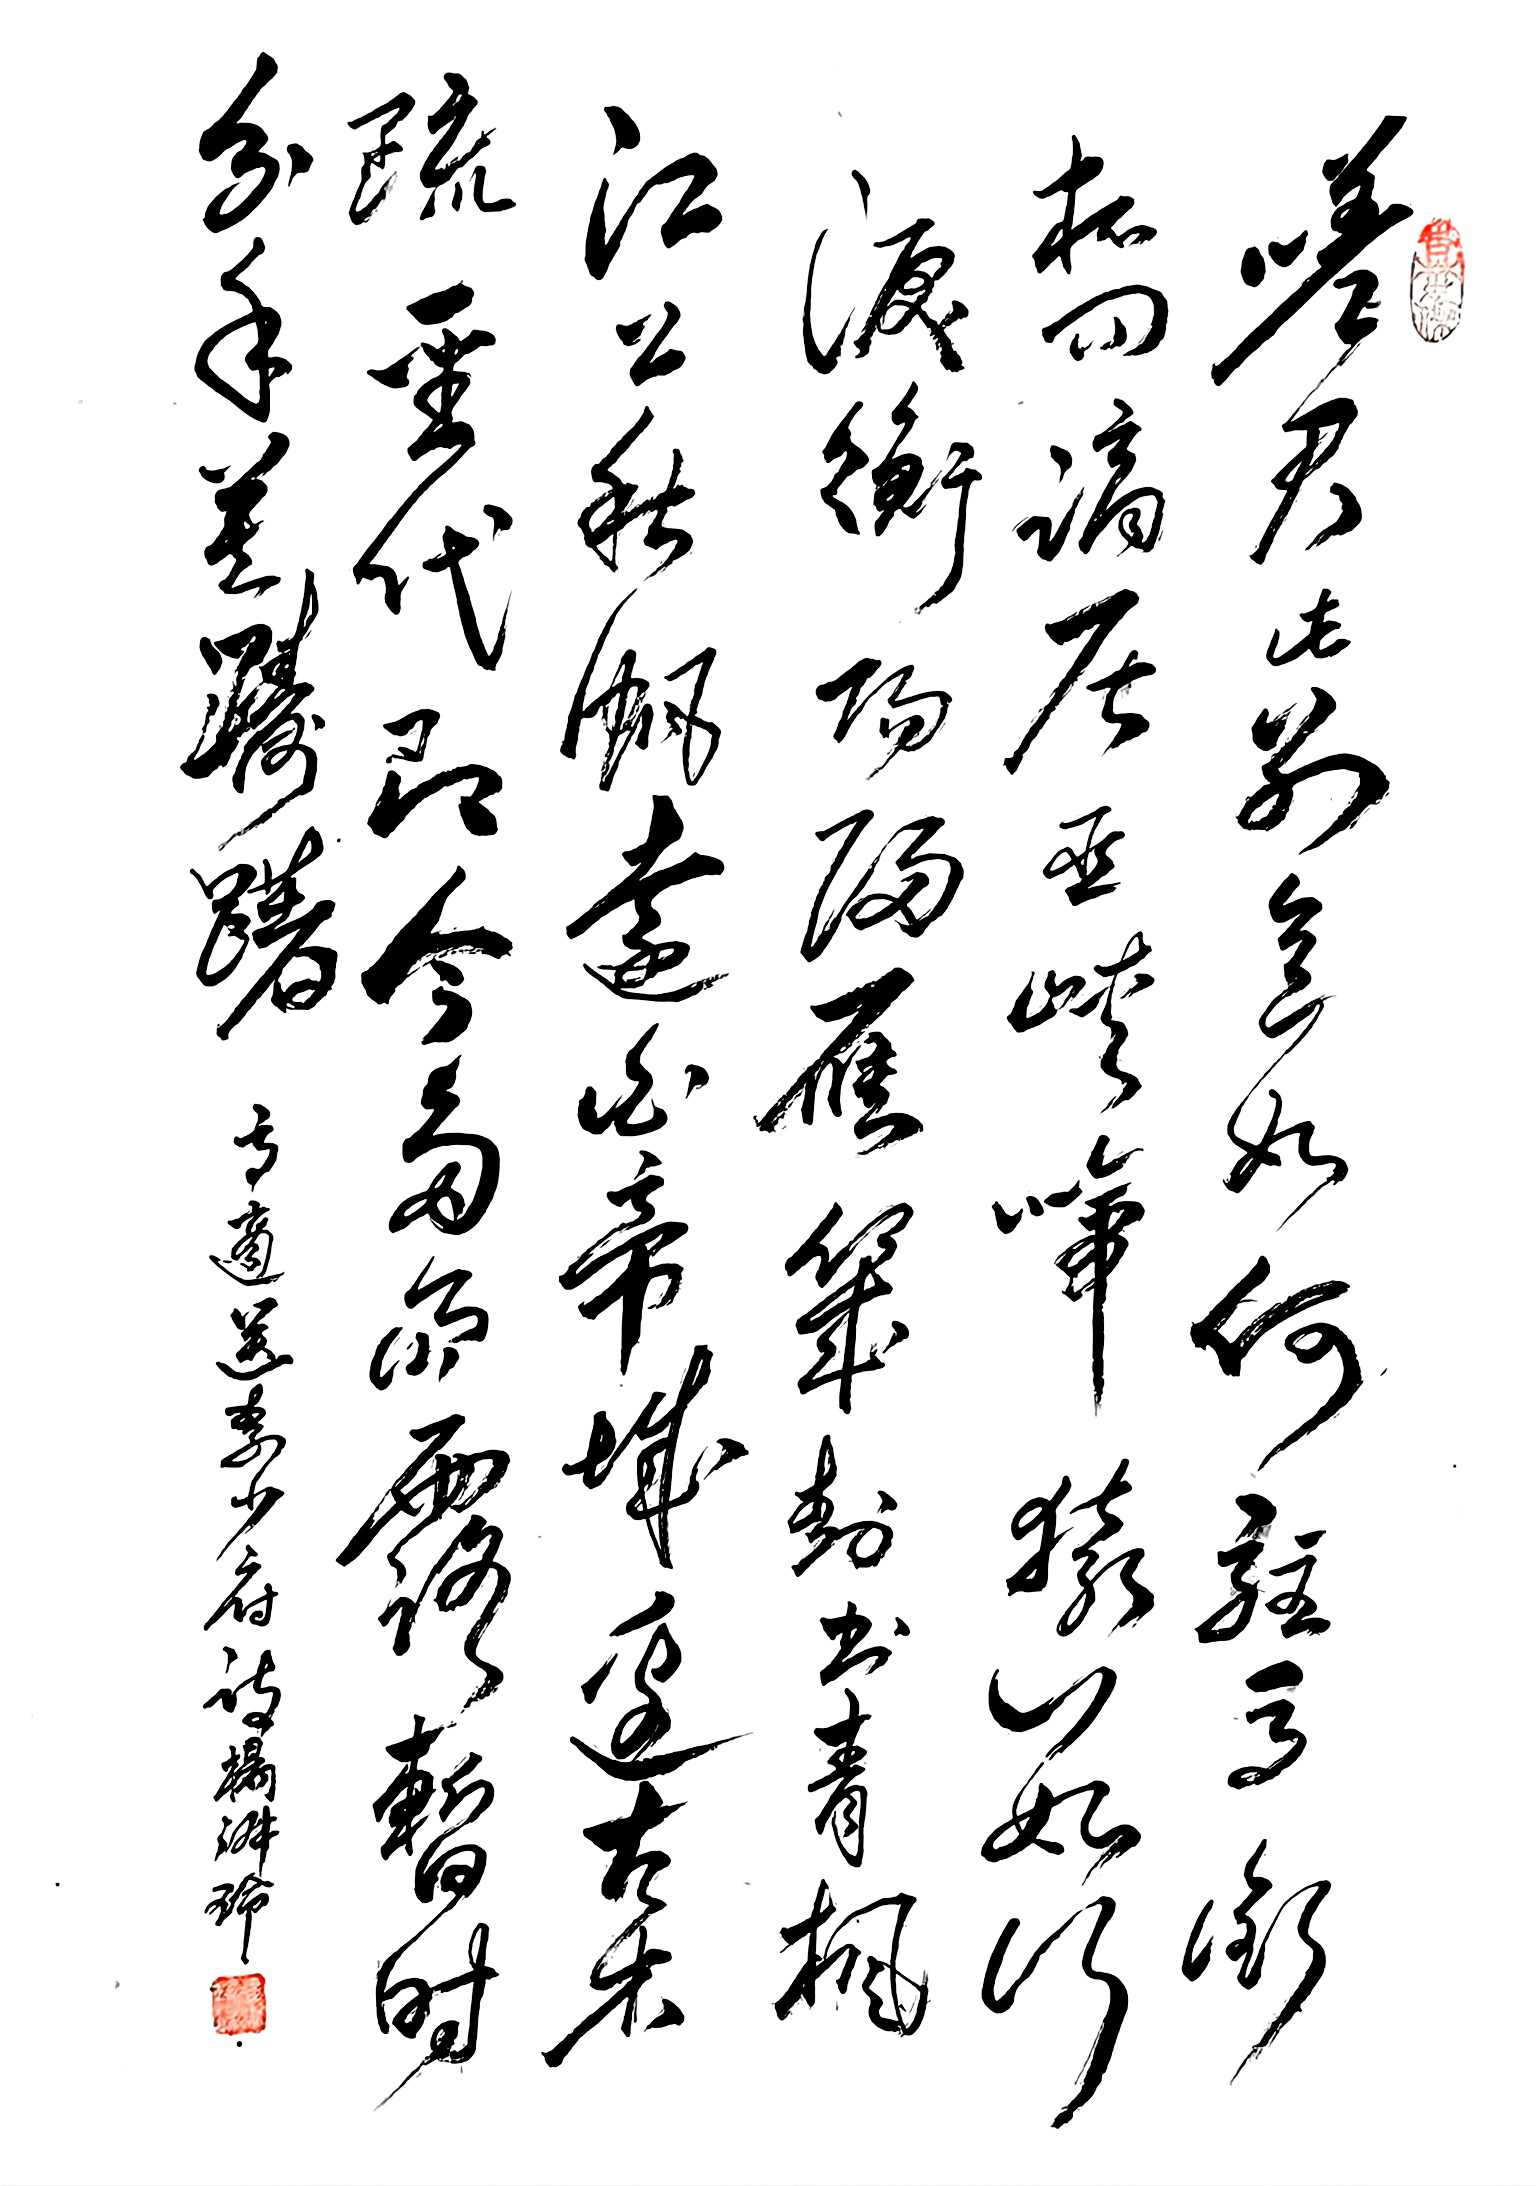 嗟君此別意如何駐馬銜
杯问謫居巫峽啼猿數行
淚衡陽歸雁幾封書青楓
江上秋帆遠白帝城邊古木
疏聖代即今多雨露暫時
分手莫躊躇
高適送李少府詩楊